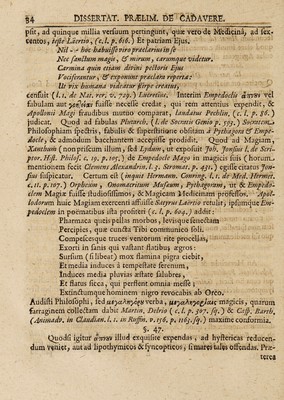 24 DISSERTAT. PRÆLIM. DE CADAVERE.
psit, ad quinque millia versuum pertingunt, quæ vero de Medicina, ad sex-
centos, teste Laërtio, (c. l. p. 616.) Et patriam Ejus.
Nil - - hoc habuisse viro præclarius in se
Nec sanctum magis, & mirum, carumque videtur.
Carmina quin etiam divini pectoris Ejus
Vociferantur, & exponunt præclara reperta:
Ut vix humana videatur stirpe creatus;
censuit (l. 1. de Nat. rer. v. 729.) Lucretius. Interim Empedoclis ἄπνουν vel
fabulam aut fuisse necesse erat, qui rem attentius expendit, &
Apollonii Magi fraudibus mutuo comparat, laudatus Pechlin, (c. l. p. 56.)
judicat. Quod ad fabulas Plutarch. (l. de Socratis Genio p. 551.) Socraticam,
Philosophiam spectris, fabulis & superstitione obsitam à Pythagora & Empe-
docle, & admodum bacchantem accepisse prodidit. Quod ad Magiam,
Xanthum (non priscum illum, sed Lydum, ut exposuit Joh. Jonsius l. de Scri-
ptor. Hist. Philos. c. 19. p. 105.) de Empedocle Mago in magicis suis (horum
mentionem fecit Clemens Alexandrin. l. 3. Stromat. p. 431.) egisse citatus Jon-
sius suspicatur. Certum est (inquit Hermann. Conring. l. 1. de Med. Hermet.
c. 11. p. 107.) Orpheum, Onomacritum Musæum, Pythagoram, ut & Empedo-
clem Magiæ fuisse studiosissimos, & Magicam Medicinam professos. Apol-
lodorum huic Magiam exercenti affuisse Satyrus Laërtio retulit, ipsumque Em-
pedoclem in poëmatibus ista profiteri (c. l. p. 609.) addit:
Pharmaca queis pellas morbos, levisque senectam
Percipies, quæ cuncta Tibi communico soli.
Compescesque truces ventorum rite procellas,
Exorti in terras qui vastant flatibus agros:
Sursum (si libeat) mox flamina pigra ciebis,
Et media induces è tempestate serenum,
Induces media pluvias æstate salubres,
Et flatus sicca, qui perflent omnia messe:
Extinctumque hominem nigro revocabis ab Orco.
Audisti Philosophi, sed verba, magicis, quarum
farraginem collectam dabit Martin. Delrio (c. l. p. 307. sq.) & Casp. Barth.
(Animadv. in Claudian. l. 1. in Ruffin. v. 156. p. 1163. sq.) maxime conformia.
§. 47.
Quodsi igitur ἄπνουν illud exquisite expendas, ad hystericas reducen-
dum veniet, aut ad lipothymicos & syncopticos, si mares tales offendas. Præ-
terea